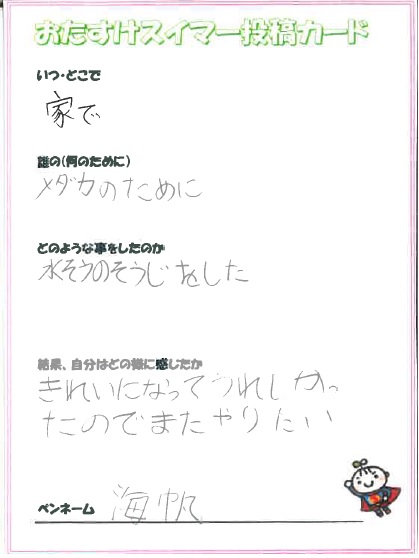 おたすけスイマー投稿カード
いつ・どこで
家で
誰の(何のために)
メダカのために
どのような事をしたのか
水そうのそうじをした
結果、自分はどの様に感じたか
きれいになってうれしかっ
たのでまたやりたい
ペンネーム 海帆